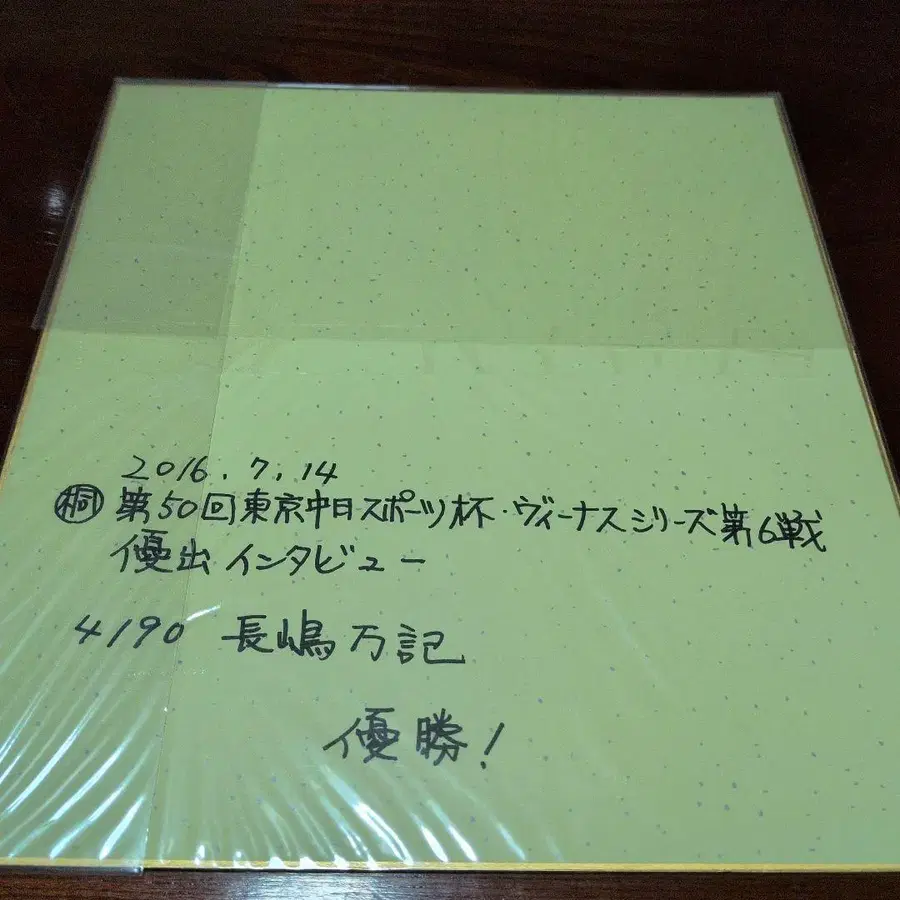 2016.7.14
㊀桐 第50回東京中日スポーツ杯・ヴィーナスシリーズ第6戦
優出インタビュー
4190 長嶋万記
優勝!